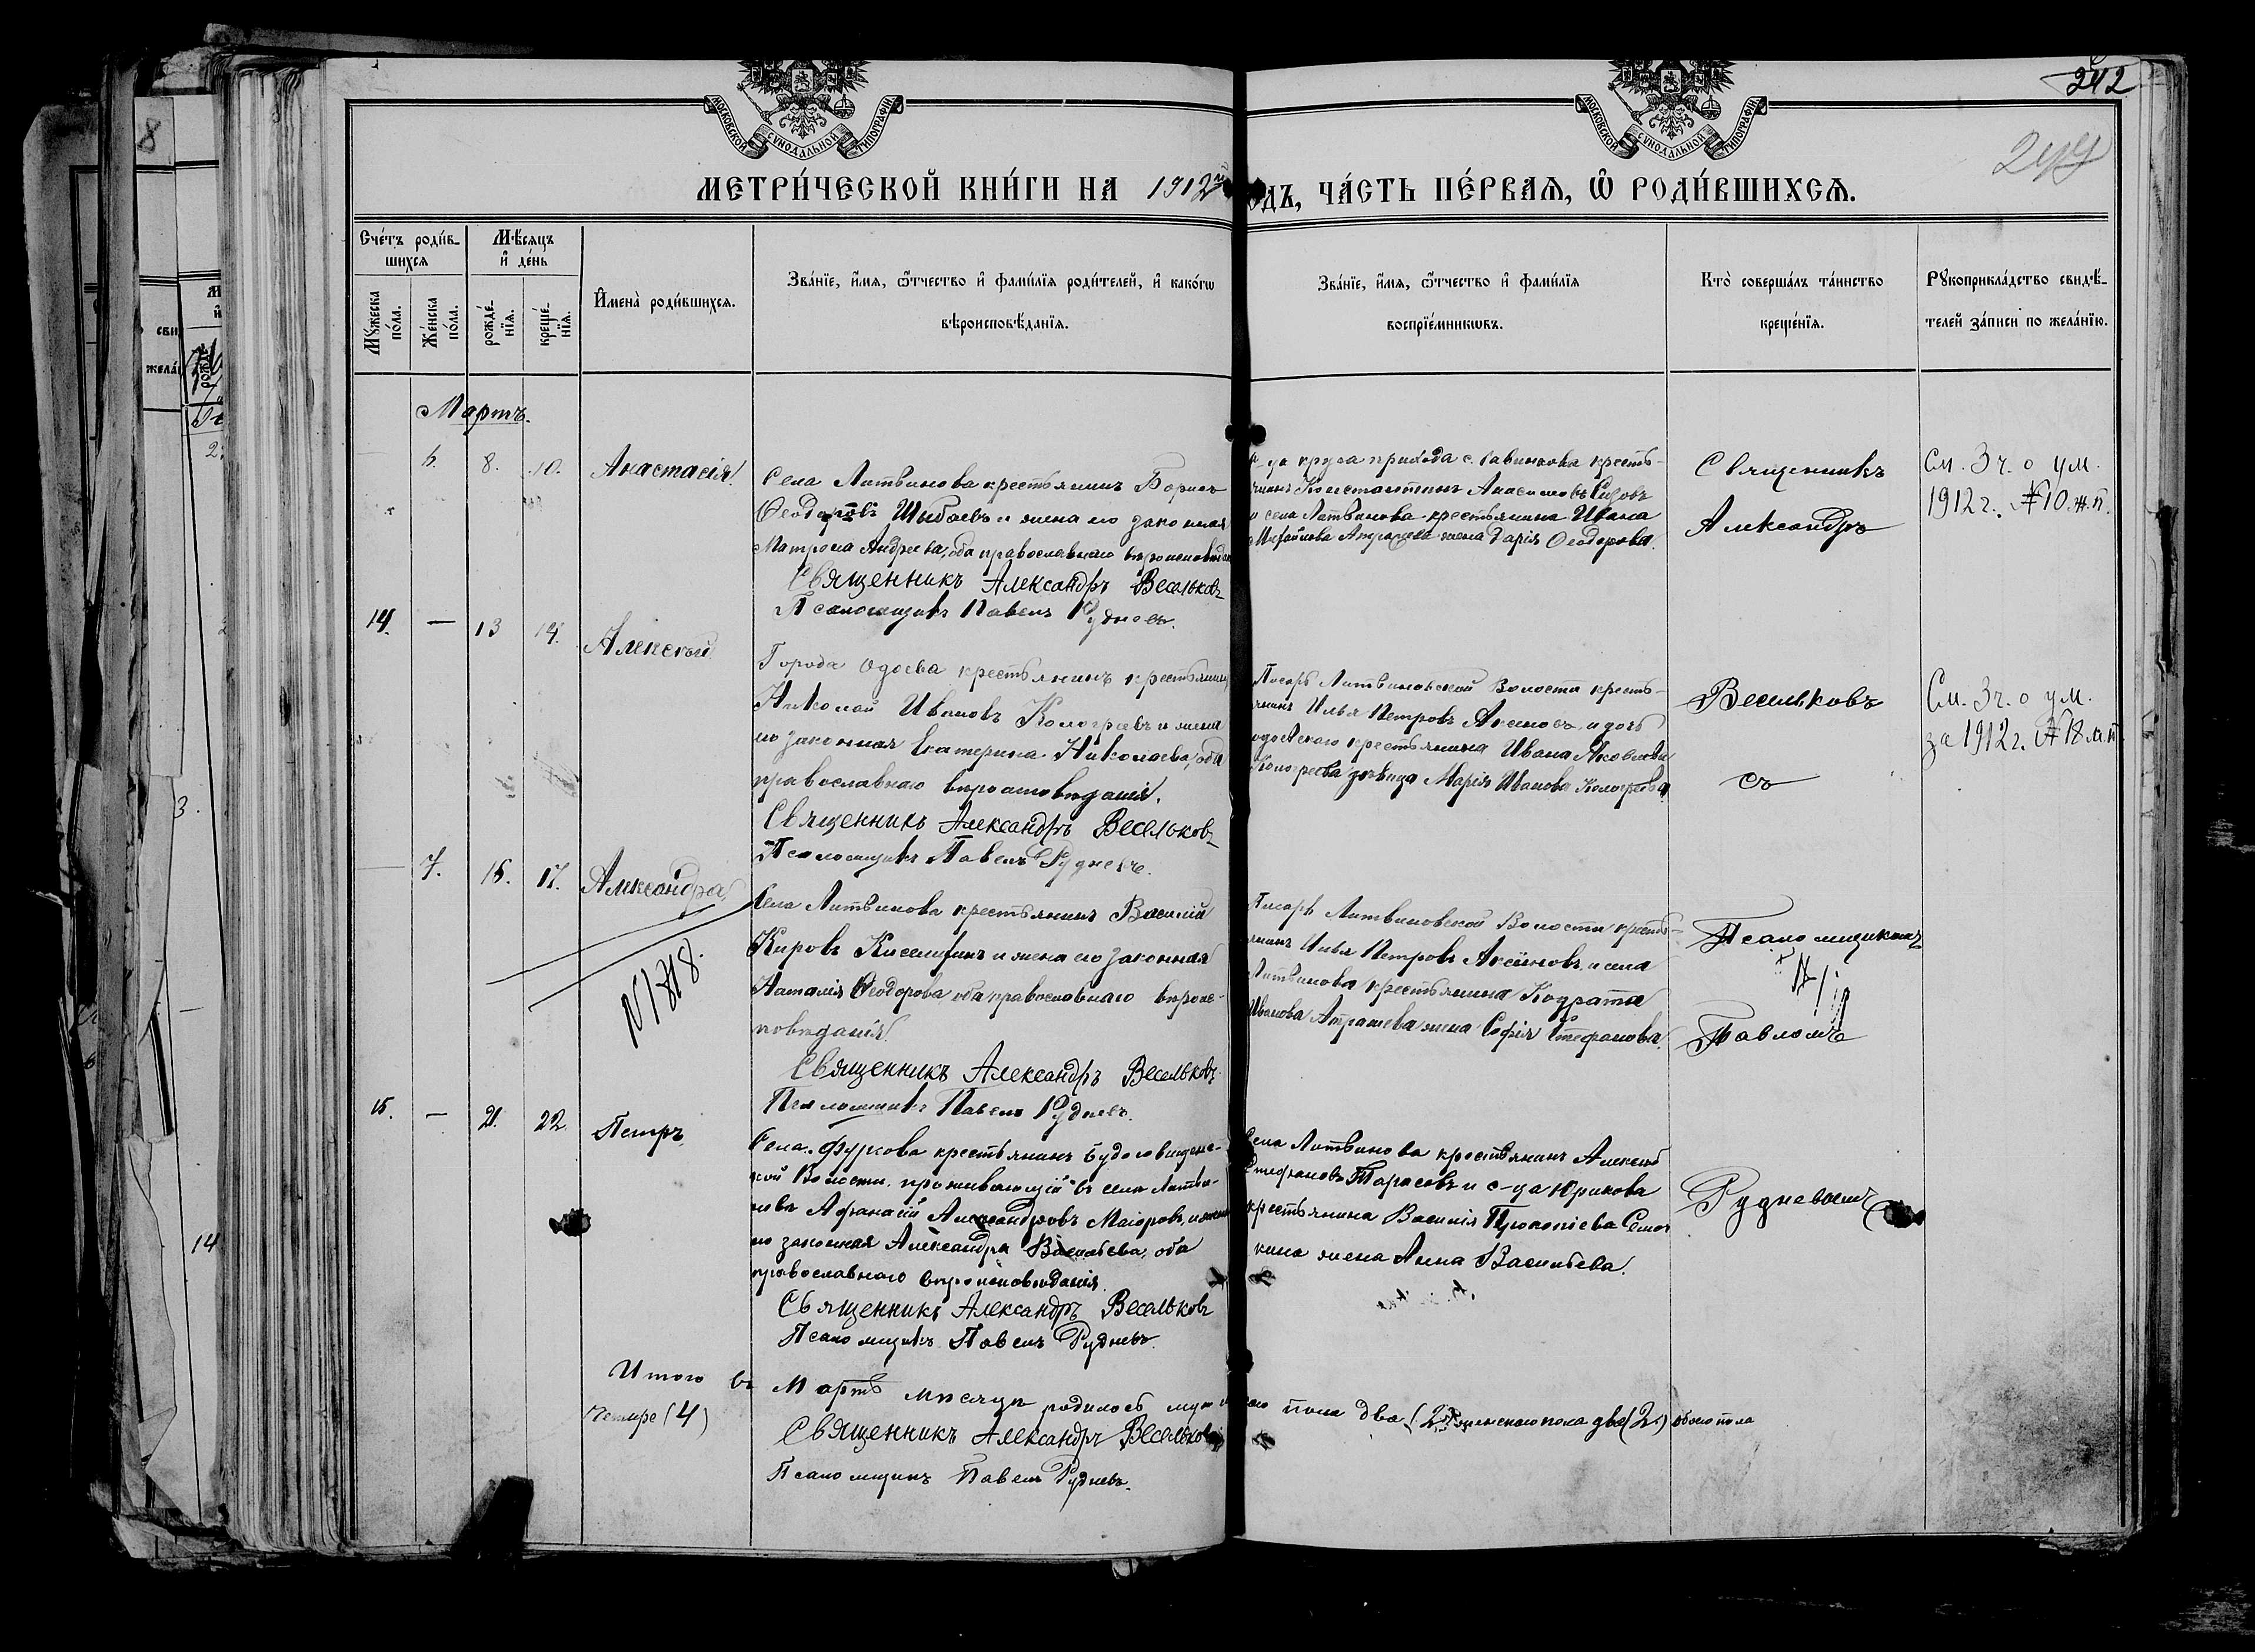 МОСКОВСКОЙ СѴНОДАЛЬНОЙ ТИПОГРАФІИ
МОСКОВСКОЙ СѴНОДАЛЬНОЙ ТИПОГРАФІИ
242
244
МЕТРИ́ЧЕСКОЙ КНИ́ГИ НА 1912й
ОДЪ, ЧА́СТЬ ПЕ́РВАѦ, Ѽ РОДИ́ВШИХСѦ.
Сче́тъ роди́в-
шихсѧ
Мѣ́сяцъ
и҆ де́нь
Мꙋ́жеска по́ла.
Же́нска по́ла.
рожде́нїѧ.
креще́нїѧ.
И҆мена̀ роди́вшихсѧ.
Зва́нїе, и҆́мѧ, ѻ҆́тчество и҆ фами́лїѧ роди́телей, и҆ како́гѡ
вѣроисповѣ́данїѧ.
Зва́нїе, и҆́мѧ, ѻ҆́тчество и҆ фами́лїѧ
воспрїе́мникѡвъ.
Кто̀ соверша́лъ та́инство
креще́нїѧ.
Рꙋкоприкла́дство свидѣ́-
телей за́писи по жела́нїю.
Мартъ.
— 6. 8. 10. Анастасія.
Села Литвинова крестьянинъ Борисъ
Ѳеодоровъ Шибаевъ и жена его законная
Матрона Андреева, оба православнаго вѣроисповѣдан
Священникъ Александръ Весельковъ
Псаломщикъ Павелъ Рудневъ.
крестьянинъ Константинъ
и села Литвинова крестьянина Ивана
Михайлова жена Дарія Ѳеодорова.
Священникъ
Александръ
См. 3 ч. о ум.
1912 г. № 10. ж. п.
14. — 13 14. Алексѣй
Города Одоева крестьянинъ крестьянинъ
Николай Ивановъ Кологривъ и жена
его законная Екатерина Николаева, оба
православнаго вѣроисповѣданія.
Священникъ Александръ Весельковъ
Псаломщикъ Павелъ Рудневъ.
Писарь Литвиновской Волости кресть-
янинъ Илья Петровъ Аксеновъ и дочь
одоевскаго крестьянина Ивана Яковлева
дѣвица Марія Иванова
Весельковъ
съ
См. 3 ч. о ум.
за 1912 г. № 18 м. п.
— 7. 15. 17. Александра
N 1818.
Села Литвинова крестьянинъ Василій
Кировъ и жена его законная
Наталія Ѳеодорова оба православнаго вѣроис-
повѣданія.
Священникъ Александръ Весельковъ
Псаломщикъ Павелъ Рудневъ.
Писарь Литвиновской Волости кресть-
янинъ Илья Петровъ Аксеновъ и села
Литвинова крестьянина Кодрата
Иванова жена Софія Стефанова.
Псаломщикомъ
Павломъ
15. — 21. 22. Петръ
Села Фурсова крестьянинъ
кой Волости, проживающій въ селѣ Литви-
новѣ Афанасій Александровъ Маіоровъ, и жена
его законная Александра Васильева, оба
православнаго вѣроисповѣданія.
Священникъ Александръ Весельковъ
Псаломщикъ Павелъ Рудневъ.
Села Литвинова крестьянинъ Алексѣй
Стефановъ Тарасовъ и с-ца Юрикова
крестьянина Василія Прокопіева Семоч
кина жена Анна Васильева.
Рудневымъ
Итого въ Мартѣ мѣсяцѣ родилось мужескаго пола два (2), женскаго пола два (2) обоего пола
четыре (4)
Священникъ Александръ Весельковъ
Псаломщикъ Павелъ Рудневъ.
14